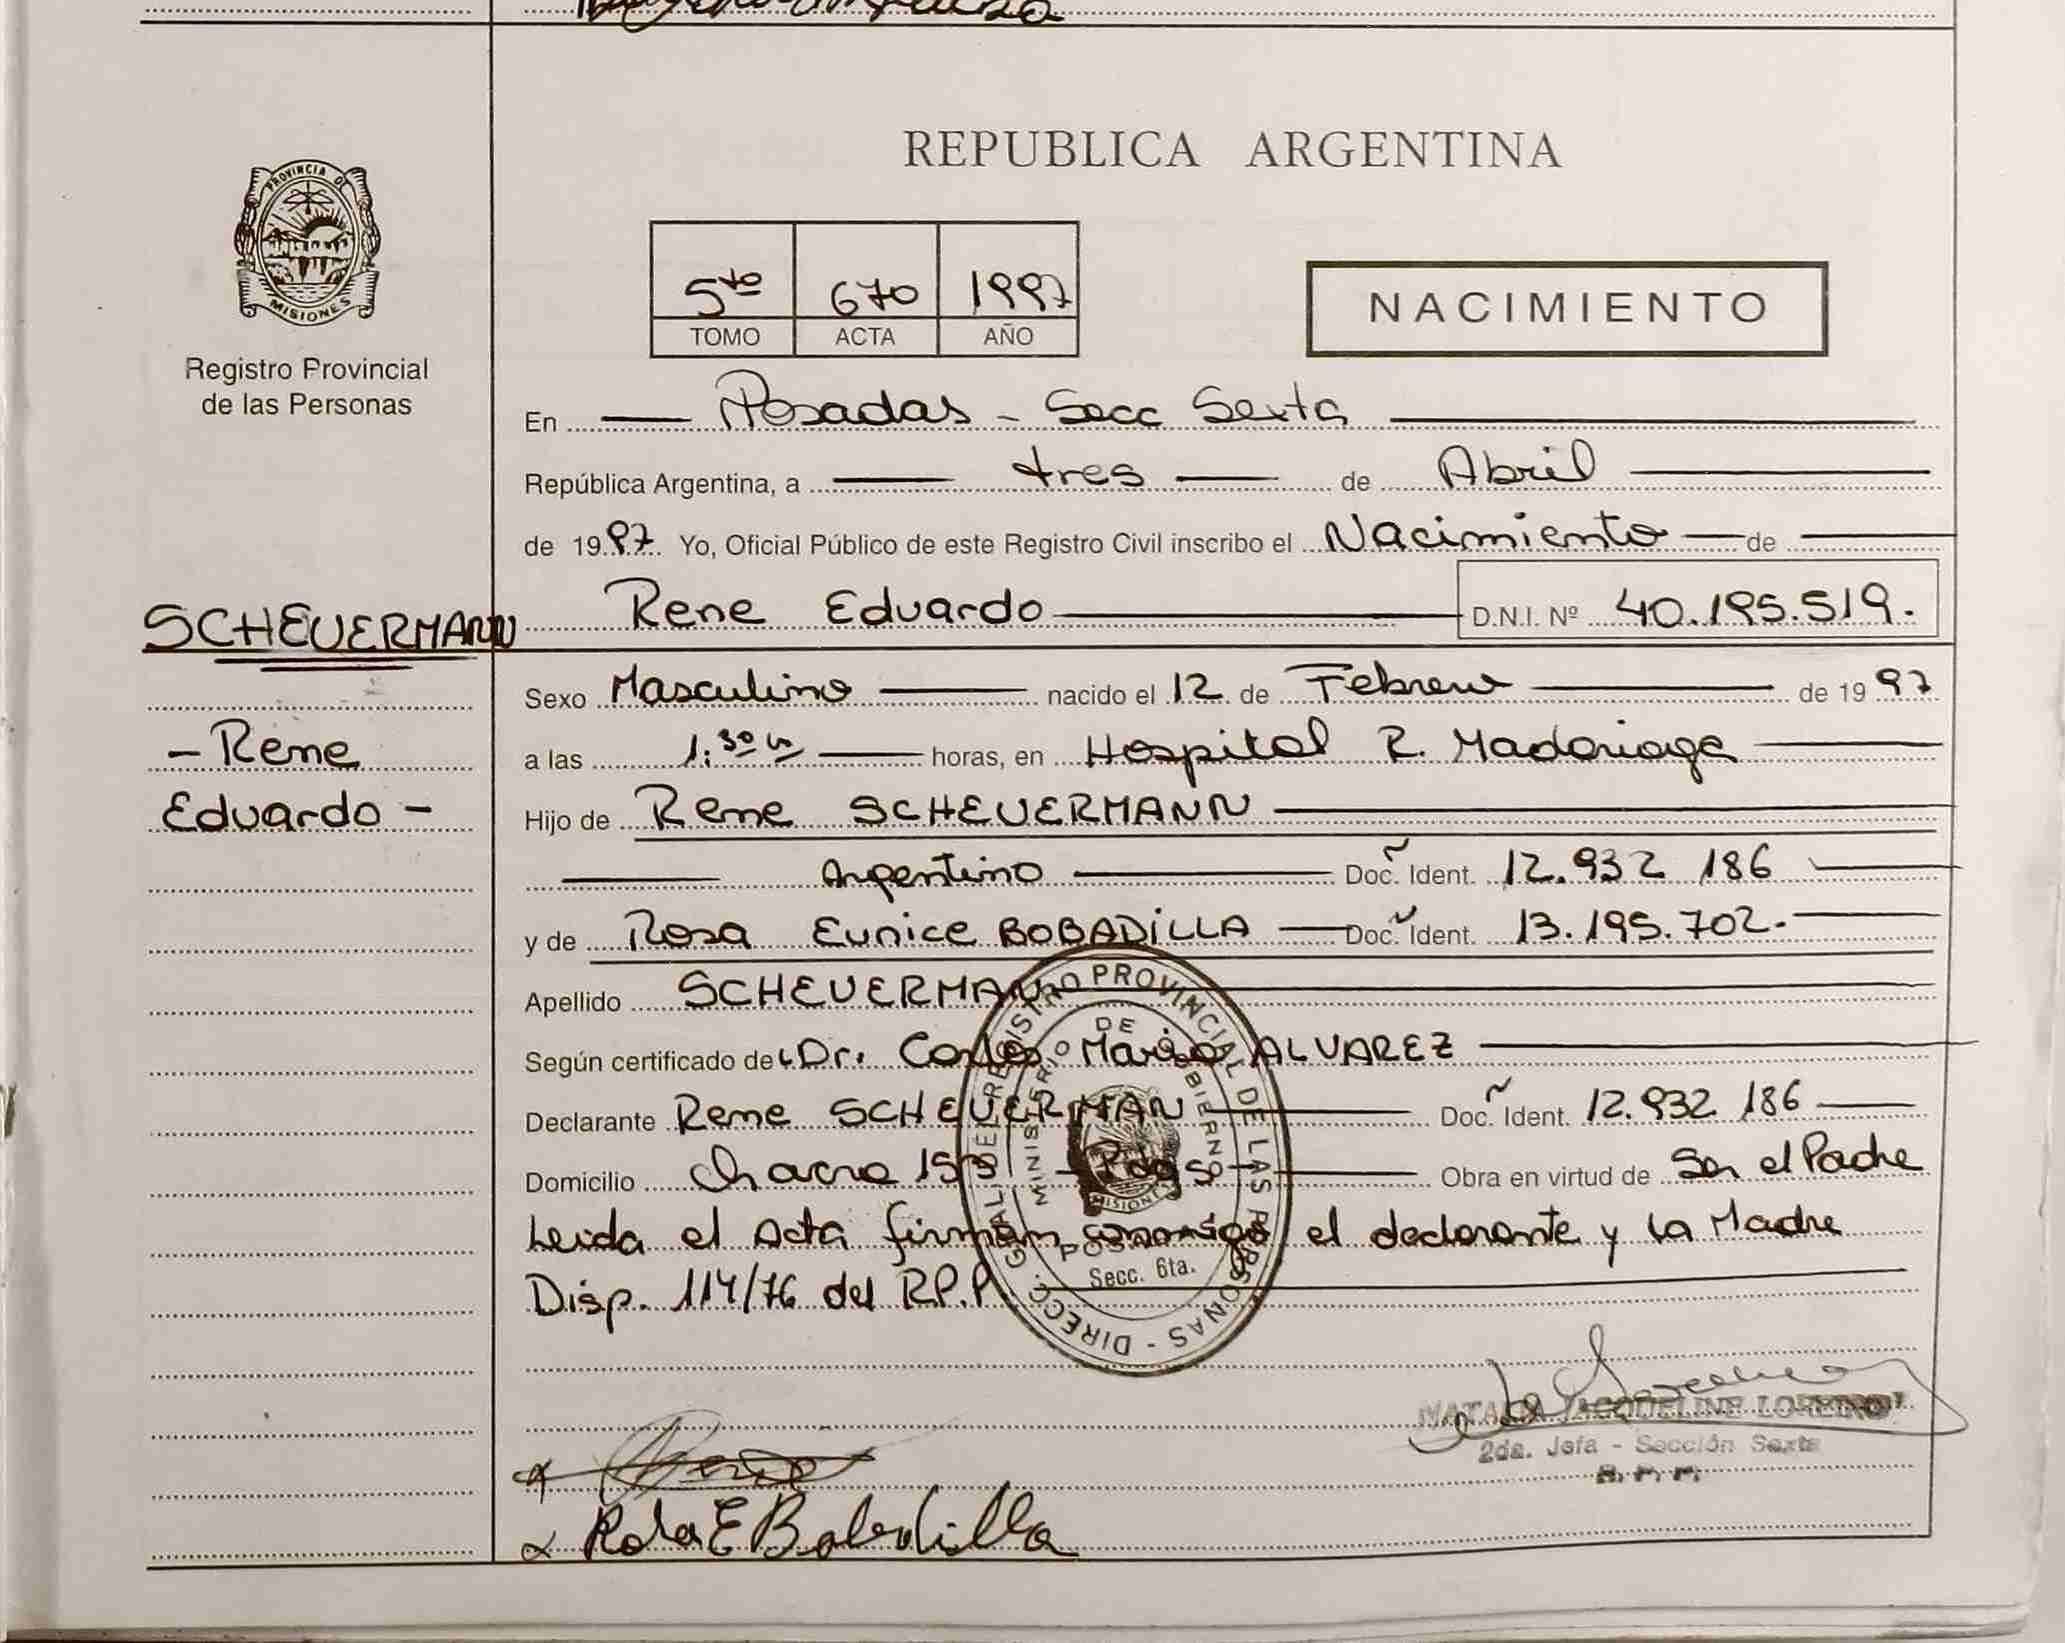 PROVINCIA DE
MISIONES
Registro Provincial
de las Personas
REPUBLICA ARGENTINA
5to 670 1997
TOMO ACTA AÑO
NACIMIENTO
En Posadas - Secc Sexta
República Argentina, a tres de Abril
de 1997. Yo, Oficial Público de este Registro Civil inscribo el Nacimiento de
SCHEUERMANN Rene Eduardo D.N.I. Nº 40.195.519.
Sexo Masculino nacido el 12 de Febrero de 1997
- Rene
Eduardo -
a las 1:30 hs horas, en Hospital R. Madariaga
Hijo de Rene SCHEUERMANN
Argentino Doc. Ident. 12.932 186
y de Rosa Eunice BOBADILLA Doc. Ident. 13.195.702.-
Apellido SCHEUERMANN
Según certificado de Dr. Carlos Mario ALVAREZ
Declarante Rene SCHEUERMAN Doc. Ident. 12.932 186
Domicilio Chacra 153 - Pdas Obra en virtud de Ser el Padre
Leida el Acta firman conmigo el declarante y la Madre
Disp. 114/76 del R.P.P
DIRECC. GRAL. DEL REGISTRO PROVINCIAL DE LAS PERSONAS
MINISTERIO DE GOBIERNO
MISIONES
POSADAS
Secc. 6ta.
JACQUELINE
2da. Jefa - Sección Sexta
R. P. P.
Rosa E Bobadilla